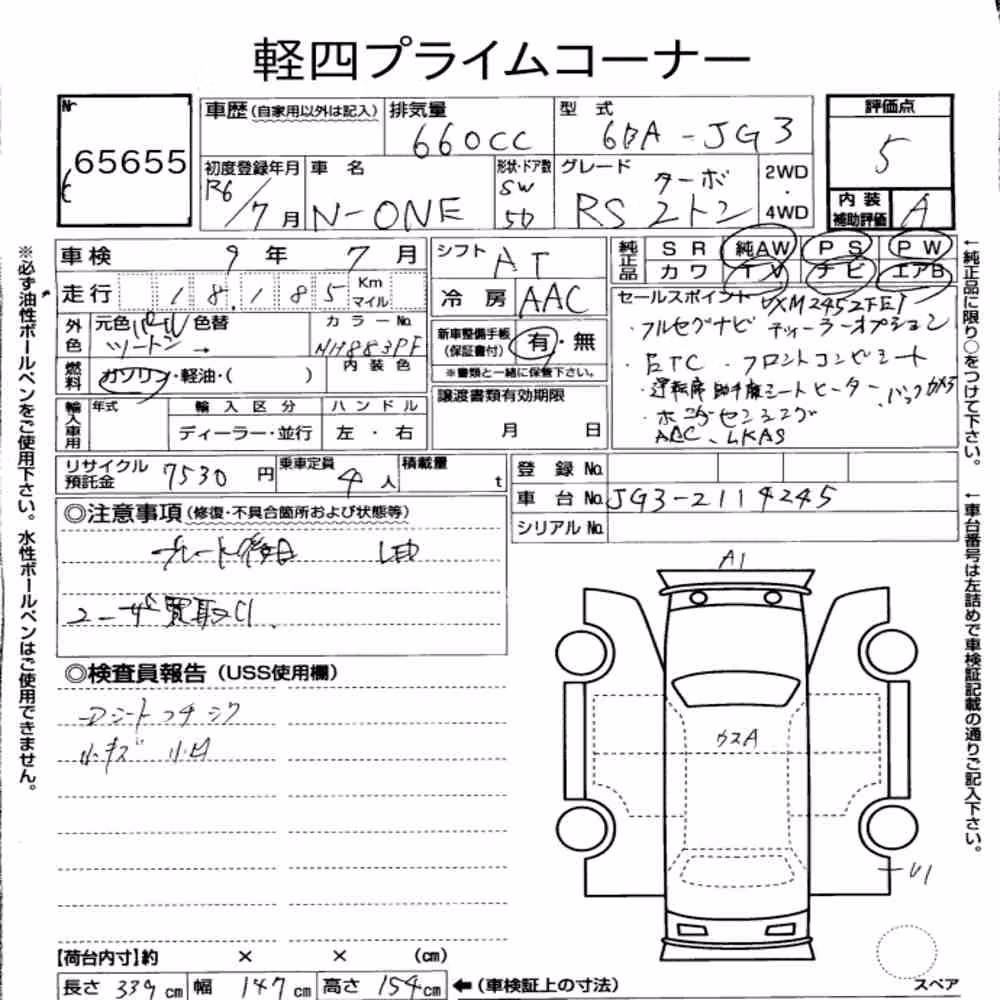 軽四プライムコーナー
Nr 65655
車歴(自家用以外は記入) 排気量 660cc 型式 6BA-JG3 評価点 5
初度登録年月 R6/7月 車名 N-ONE 形状・ドア数 SW 5D グレード ターボ RS 2トン 2WD・4WD 内装補助評価 A
車検 9年 7月 シフト AT 純正品 SR 純AW PS PW
カワ TV ナビ エアB
走行 18,185 Km マイル 冷房 AAC
外色 元色 パール ツートン → 色替 カラーNo. NH883PF 新車整備手帳(保証書付) 有・無
燃料 ガソリン・軽油・( ) 内装色 ※書類と一緒に保管下さい。
セールスポイント VXM245ZFEi
・フルセグナビ ディーラーオプション
・ETC ・フロントコンビシート
・運転席助手席シートヒーター ・バックカメラ
・ホンダセンシング
ACC、LKAS
輸入車用 年式 輸入区分 ハンドル 譲渡書類有効期限
ディーラー・並行 左・右 月 日
リサイクル預託金 7530円 乗車定員 4人 積載量 t
登録No.
車台No. JG3-2114245
シリアルNo.
◎注意事項(修復・不具合箇所および状態等)
プレート後日 LED
ユーザー買取り.
◎検査員報告(USS使用欄)
Dシートフチシワ
小キズ 小凹
A1
ウスA
U1
スペア
【荷台内寸】約 × × (cm)
長さ 339cm 幅 147cm 高さ 154cm ←(車検証上の寸法)
※必ず油性ボールペンをご使用下さい。水性ボールペンはご使用できません。
←純正品に限り○をつけて下さい。
←車台番号は左詰めで車検証記載の通りご記入下さい。